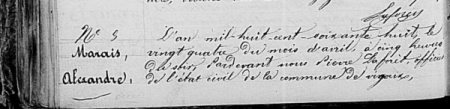 Laforgue
N° 3 L'an mil-huit-cent-soixante huit, le
Marais, vingt quatre du mois d'avril, à cinq heures
Alexandre, du soir, Pardevant nous Pierre officier
de l'état civil de la commune de